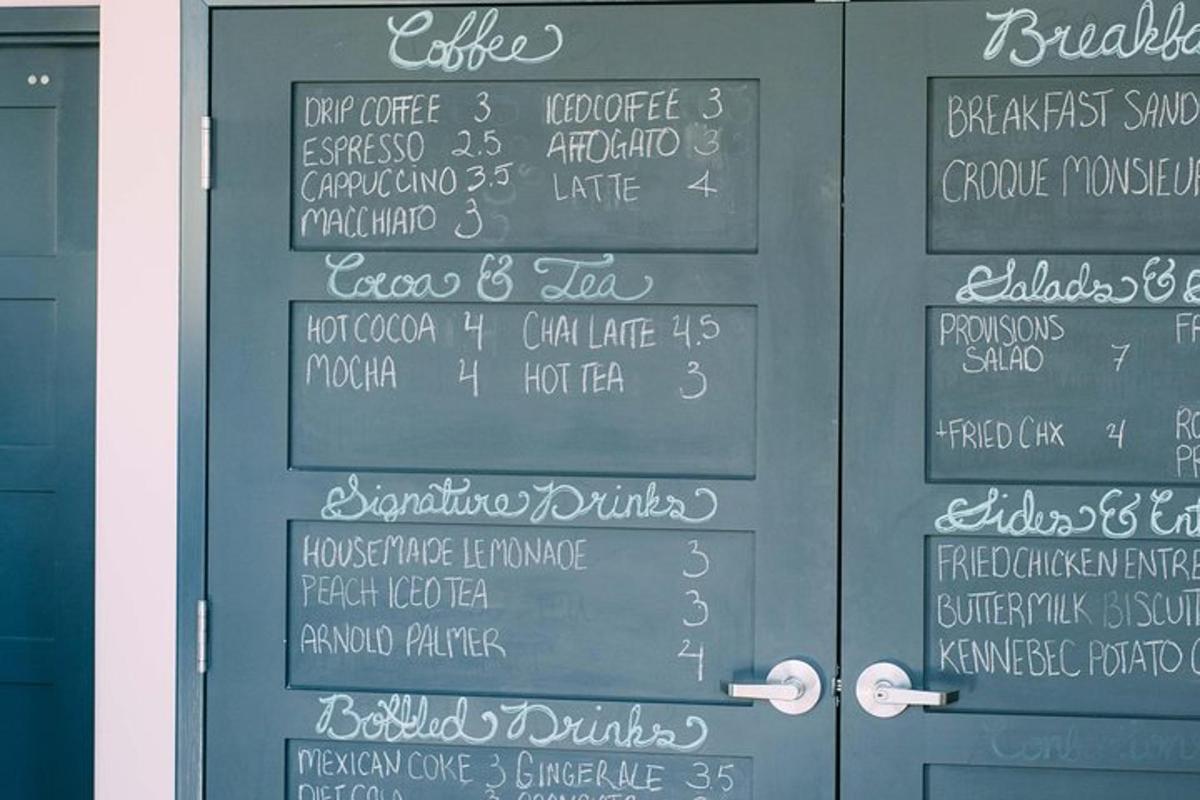 Coffee
DRIP COFFEE 3 ICED COFFEE 3
ESPRESSO 2.5 AFFOGATO 3
CAPPUCCINO 3.5 LATTE 4
MACCHIATO 3
Cocoa & Tea
HOT COCOA 4 CHAI LATTE 4.5
MOCHA 4 HOT TEA 3
Signature Drinks
HOUSEMADE LEMONADE 3
PEACH ICED TEA 3
ARNOLD PALMER 4
Bottled Drinks
MEXICAN COKE 3 GINGER ALE 3.5
Breakfa
BREAKFAST SAND
CROQUE MONSIEUR
Salads &
PROVISIONS
SALAD 7
+FRIED CHX 4
Sides & Ent
FRIED CHICKEN ENTRE
BUTTERMILK BISCUIT
KENNEBEC POTATO C